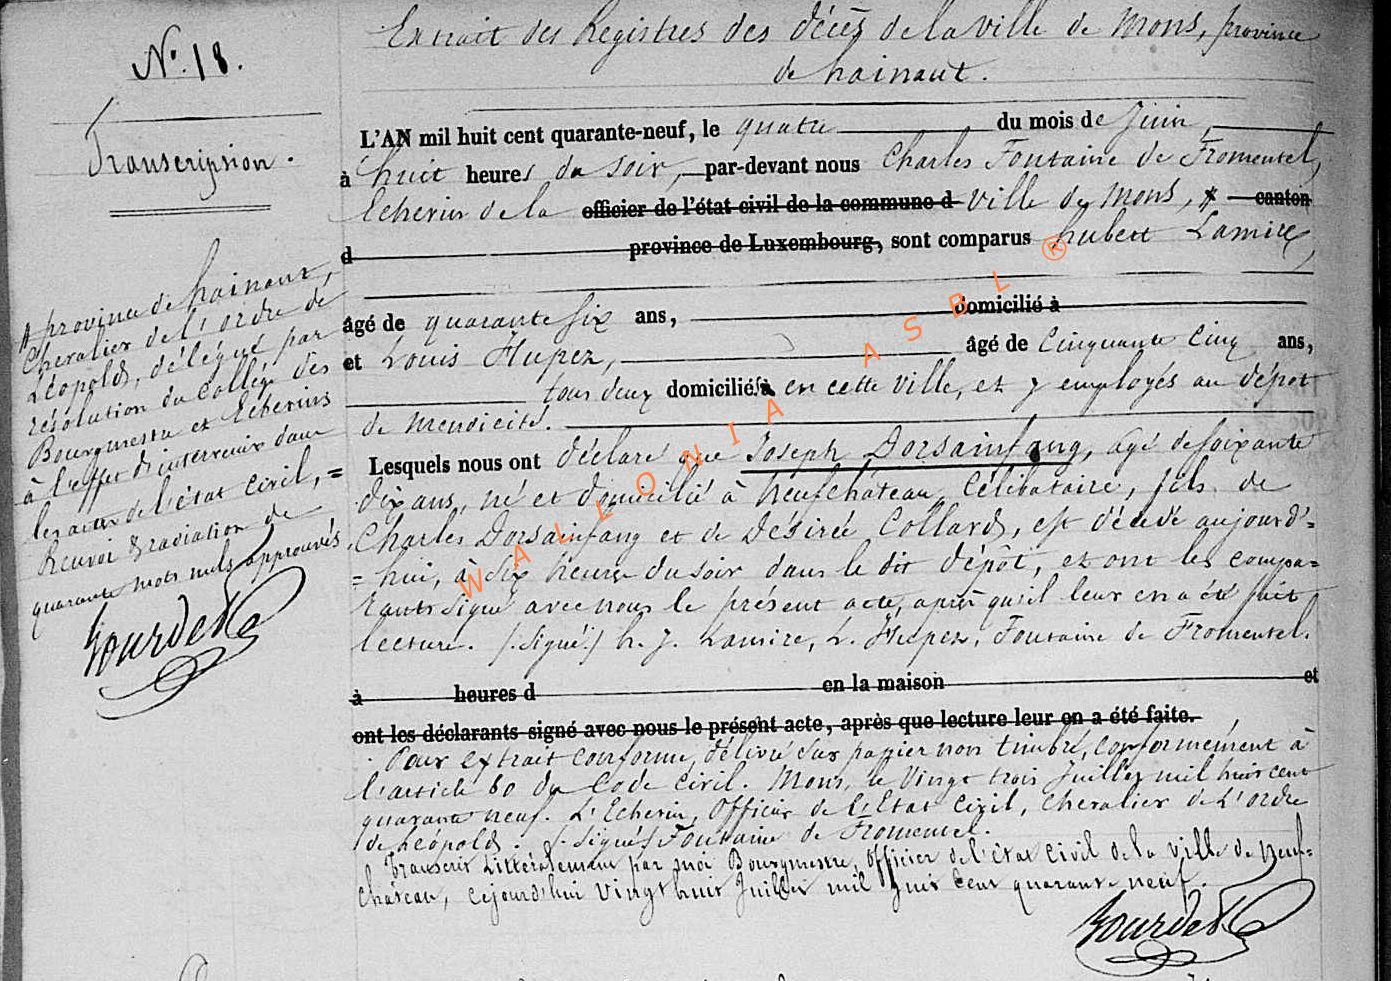 N°. 18.
Transcription.
# province de hainaut,
Chevalier de l'ordre de
Léopold, délégué par
résolution du Collége des
Bourgmestre et Echevins
à l'effet d'intervenir dans
les actes de l'état civil, =
Renvoi & radiation de
quarante mots nuls approuvés
Extrait des Registres des décès de la ville de Mons, province
de hainaut.
L'AN mil huit cent quarante-neuf, le quatre du mois de Juin,
à huit heures du soir, par-devant nous Charles Fontaine de Fromentel,
Echevin de la officier de l'état civil de la commune d ville de Mons, # canton
d province de Luxembourg, sont comparus hubert Lamire,
âgé de quarante six ans, domicilié à
et Louis Hupez, âgé de Cinquante Cinq ans,
tous deux domiciliés à en cette ville, et y employés au dépôt
de mendicité.
Lesquels nous ont déclaré que Joseph Dorsainfang, agé de soixante
dix ans, né et domicilié à Neufchateau, Célibataire, fils de
Charles Dorsainfang et de Désirée Collard, est décédé aujourd'=
= hui, à six heures du soir dans le dit dépôt, et ont les compa=
rants signé avec nous le présent acte, après qu'il leur en a été fait
lecture. (.Signé.) h. J. Lamire, L. Hupez, Fontaine de Fromentel.
à heures d en la maison et
ont les déclarants signé avec nous le présent acte, après que lecture leur en a été faite.
Pour extrait conforme, délivré sur papier non timbré, conformément à
l'article 80 du Code Civil. Mons, le Vingt trois Juillet mil huit cent
quarante neuf. L'Echevin, Officier de l'Etat Civil, Chevalier de L'Ordre
de Léopold. (.Signé) Fontaine de Fromentel.
Transcrit Littéralement par moi Bourgmestre, Officier de l'état Civil de la Ville de Neuf=
chateau, cejourd'hui Vingt huit Juillet mil huit Cent quarante neuf.
WALLONIA ASBL ®